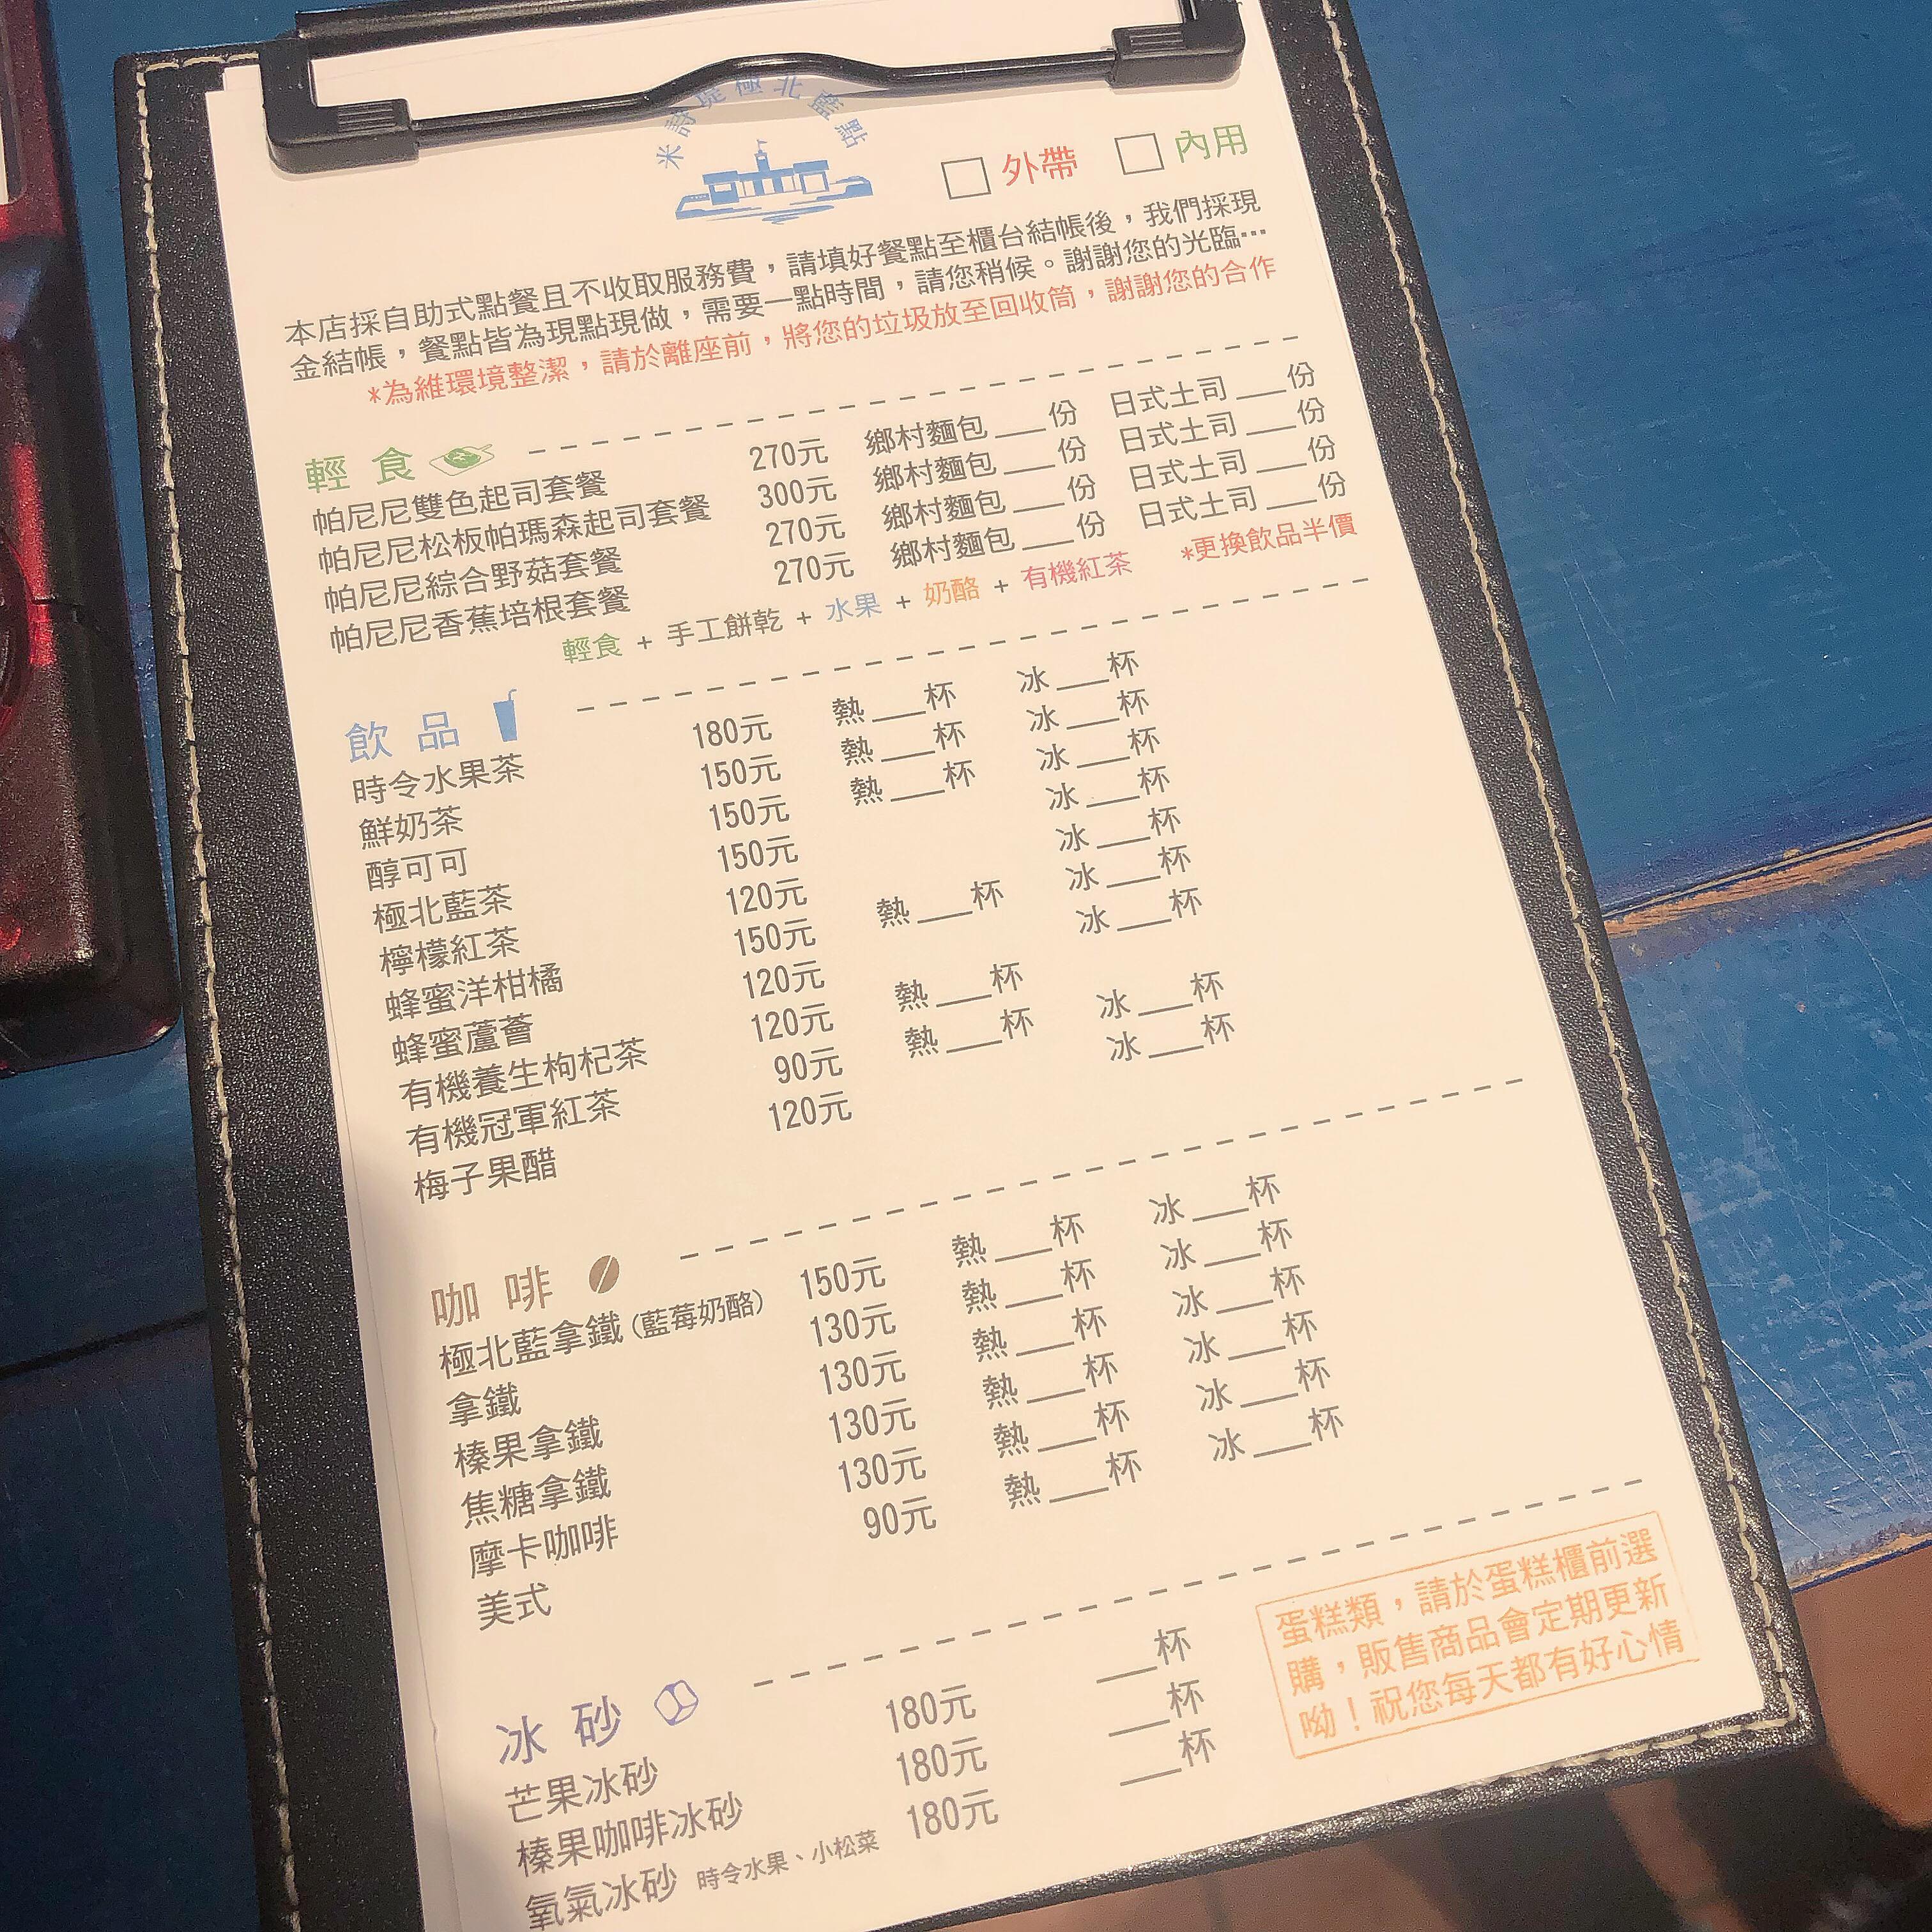 米詩堤極北藍點
外帶 內用
本店採自助式點餐且不收取服務費，請填好餐點至櫃台結帳後，我們採現
金結帳，餐點皆為現點現做，需要一點時間，請您稍候。謝謝您的光臨…
*為維環境整潔，請於離座前，將您的垃圾放至回收筒，謝謝您的合作
輕食
帕尼尼雙色起司套餐 270元 鄉村麵包___份 日式土司___份
帕尼尼松板帕瑪森起司套餐 300元 鄉村麵包___份 日式土司___份
帕尼尼綜合野菇套餐 270元 鄉村麵包___份 日式土司___份
帕尼尼香蕉培根套餐 270元 鄉村麵包___份 日式土司___份
輕食 + 手工餅乾 + 水果 + 奶酪 + 有機紅茶 *更換飲品半價
飲品
時令水果茶 180元 熱___杯 冰___杯
鮮奶茶 150元 熱___杯 冰___杯
醇可可 150元 熱___杯 冰___杯
極北藍茶 150元 冰___杯
檸檬紅茶 120元 冰___杯
蜂蜜洋柑橘 150元 熱___杯 冰___杯
蜂蜜蘆薈 120元 冰___杯
有機養生枸杞茶 120元 熱___杯
有機冠軍紅茶 90元 熱___杯 冰___杯
梅子果醋 120元 冰___杯
咖啡
極北藍拿鐵(藍莓奶酪) 150元 熱___杯 冰___杯
拿鐵 130元 熱___杯 冰___杯
榛果拿鐵 130元 熱___杯 冰___杯
焦糖拿鐵 130元 熱___杯 冰___杯
摩卡咖啡 130元 熱___杯 冰___杯
美式 90元 熱___杯 冰___杯
冰砂
芒果冰砂 180元 ___杯
榛果咖啡冰砂 180元 ___杯
氧氣冰砂 時令水果、小松菜 180元 ___杯
蛋糕類，請於蛋糕櫃前選
購，販售商品會定期更新
呦！祝您每天都有好心情